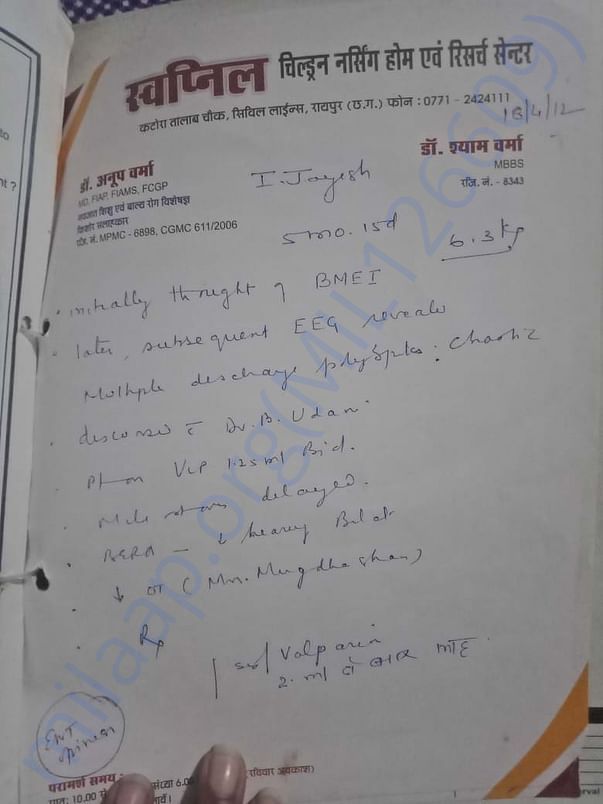 स्वप्निल चिल्ड्रन नर्सिंग होम एवं रिसर्च सेन्टर
कटोरा तालाब चौक, सिविल लाईन्स, रायपुर (छ.ग.) फोन : 0771 - 2424111
18/4/12
डॉ. अनूप वर्मा
MD, FIAP, FIAMS, FCGP
नवजात शिशु एवं बाल्य रोग विशेषज्ञ
किशोर सलाहकार
रजि. नं. MPMC - 6898, CGMC 611/2006
डॉ. श्याम वर्मा
MBBS
रजि. नं. - 8343
I. Jayesh
5 mo. 15d
6.3 kg
initially thought of BMEI
later, subsequent EEG reveals
Multiple discharge polyspikes : chaotic
discussed c Dr. B. Udani
Pt on VLP 1.25 ml Bid.
Milestones delayed.
BERA - ↓ hearing Bilat
↓
Rp
Valparin
2. ml दो बार
ENT opinion
परामर्श समय :
प्रातः 10.00 से
संध्या 6.0
(रविवार अवकाश)
milaap.org(MIL126699)